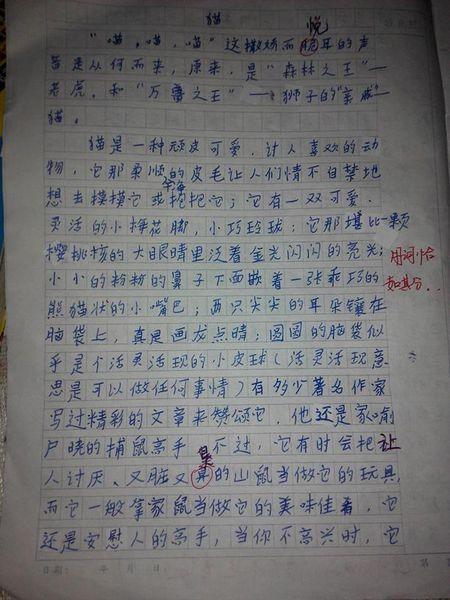 猫
悦
“喵，喵，喵”这撒娇而脆耳的声
音是从何而来，原来，是“森林之王”—
老虎，和“万兽之王”——狮子的“亲戚”—
猫。
猫是一种顽皮可爱，讨人喜欢的动
物，它那柔顺的皮毛让人们情不自禁地
想去摸摸它或抱抱它；它有一双可爱、
灵活的小梅花脚，小巧玲珑；它那堪比一颗
樱桃核的大眼睛里泛着金光闪闪的亮光；
用词恰
小小的粉粉的鼻子下面嵌着一张乖巧的
如其分
熊猫状的小嘴巴；两只尖尖的耳朵镶在
脑袋上，真是画龙点睛；圆圆的脑袋似
乎是个活灵活现的小皮球（活灵活现意
思是可以做任何事情）有多少著名作家
写过精彩的文章来赞颂它，他还是家喻
户晓的捕鼠高手，不过，它有时会把让
臭
人讨厌、又脏又的山鼠当做它的玩具，
而它一般拿家鼠当做它的美味佳肴，它
还是安慰人的高手，当你不高兴时，它
日期： 年 月 日
第